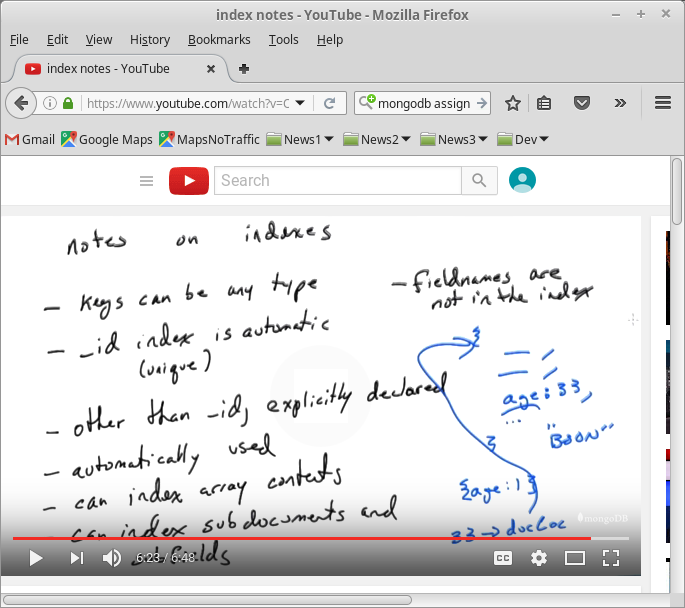 index notes - YouTube - Mozilla Firefox
File Edit View History Bookmarks Tools Help
index notes - YouTube
https://www.youtube.com/watch?v=C
mongodb assign
Gmail Google Maps MapsNoTraffic News1 News2 News3 Dev
Search
notes on indexes
- keys can be any type
- _id index is automatic
(unique)
- other than _id, explicitly declared
- automatically used
- can index array contents
- can index subdocuments and
subfields
- fieldnames are
not in the index
{
age: 33,
...
"BSON"
}
{age: 1}
33 → docLoc
mongoDB
6:23 / 6:48
CC